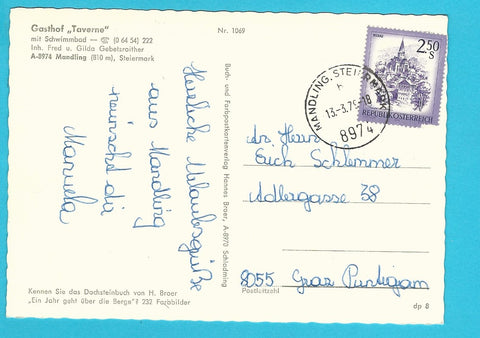 Gasthof „Taverne"
mit Schwimmbad — ☎ (0 64 54) 222
Inh. Fred u. Gilda Gebetsroither
A-8974 Mandling (810 m), Steiermark
Nr. 1069
Herzliche Urlaubsgrüße
aus Mandling
wünscht dir
Manuela
Buch- und Farbpostkartenverlag Hannes Broer, A-8970 Schladming
MANDLING, STEIERMARK
13.-3.75-18
8974
2.50
S
REPUBLIK ÖSTERREICH
An Herrn
Erich Schlemmer
Adlergasse 38
8055 Graz Puntigam
Postleitzahl
Kennen Sie das Dachsteinbuch von H. Broer
„Ein Jahr geht über die Berge"? 232 Farbbilder
dp 8